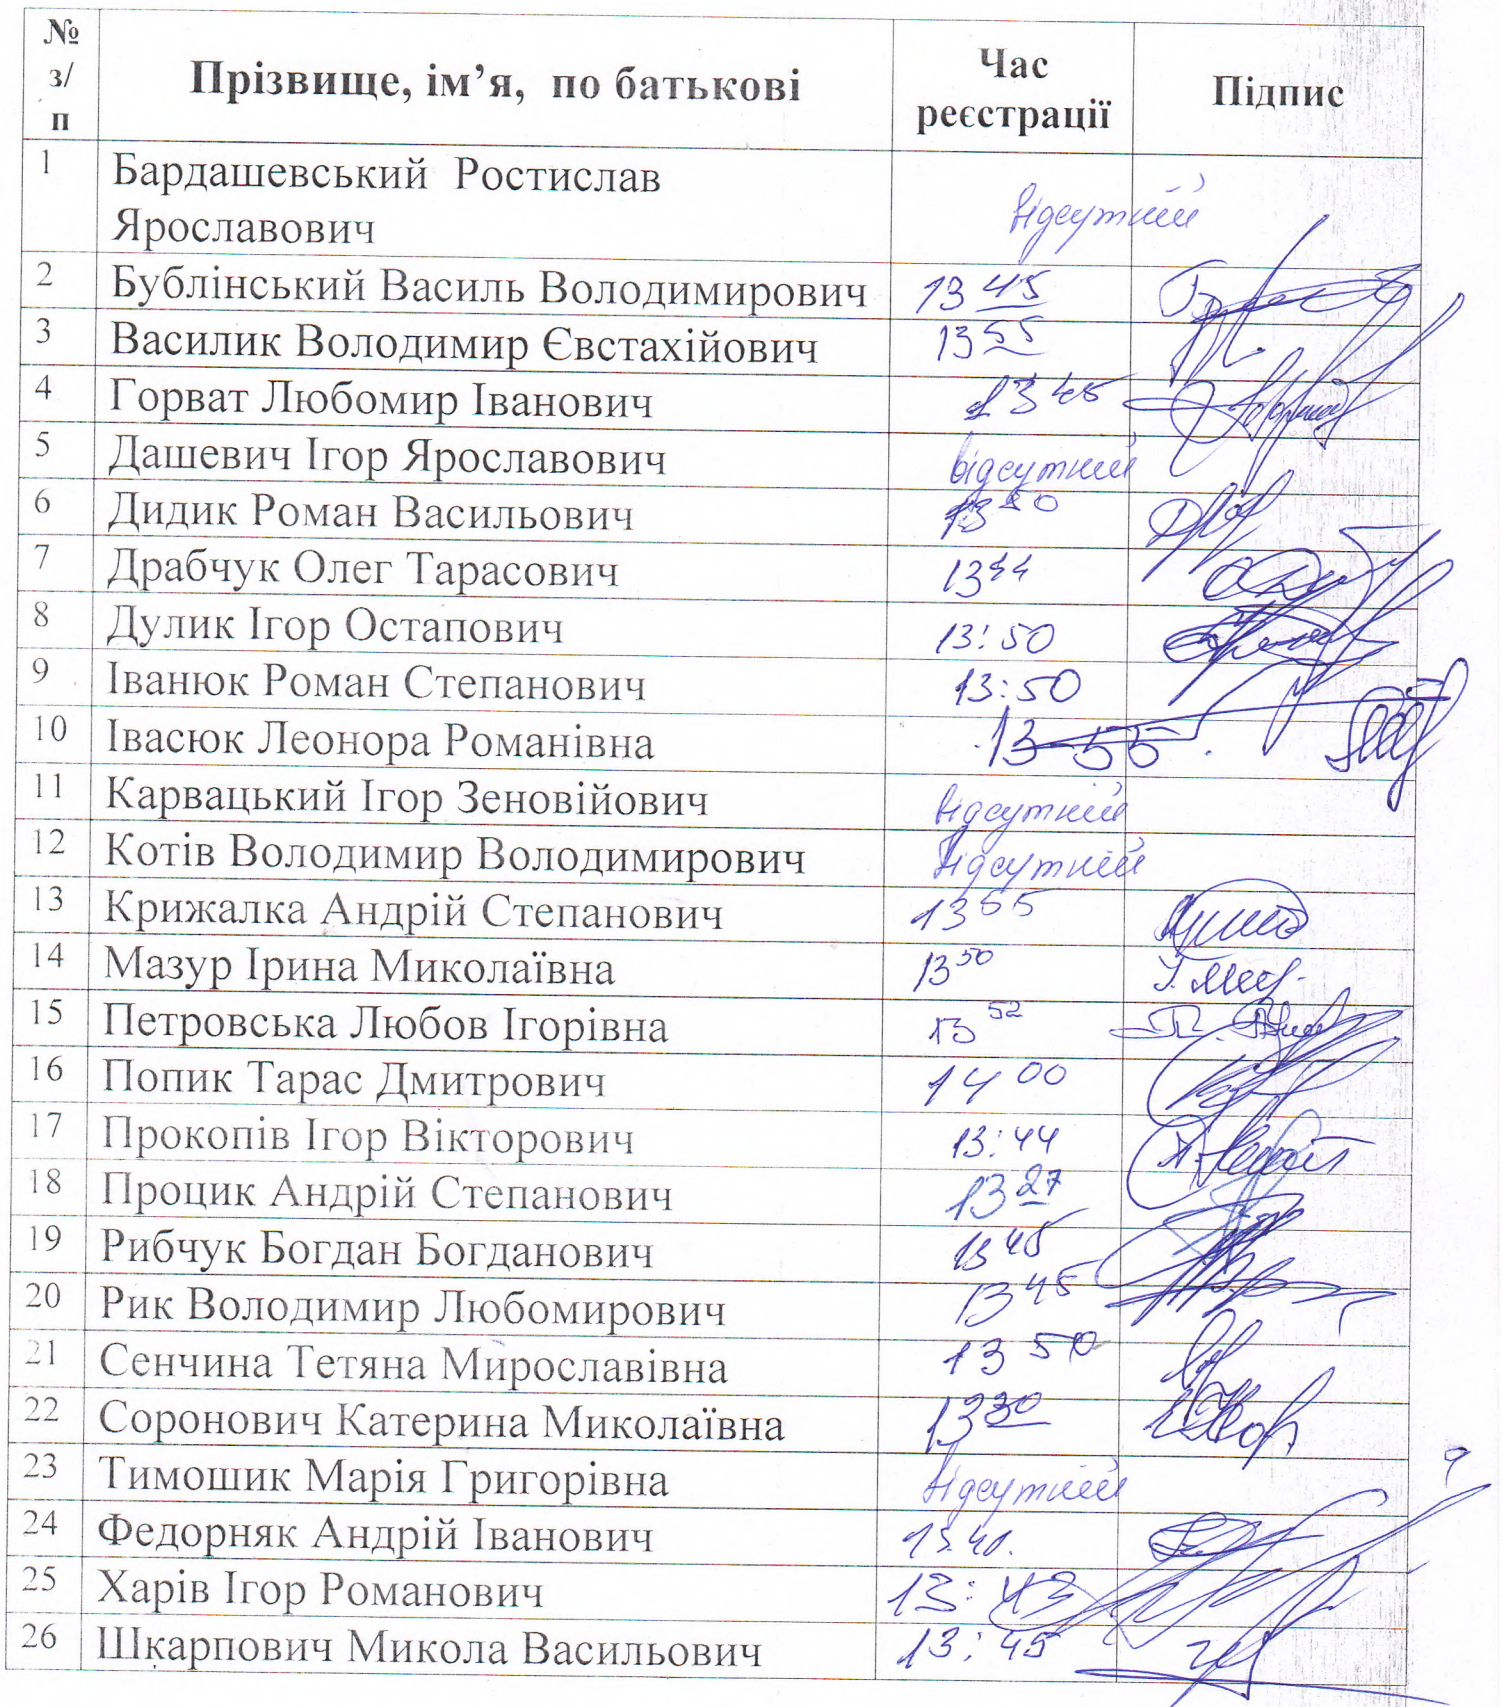 № з/п Прізвище, ім’я, по батькові Час реєстрації Підпис
1 Бардашевський Ростислав Ярославович відсутній
2 Бублінський Василь Володимирович 13 45
3 Василик Володимир Євстахійович 13 55
4 Горват Любомир Іванович 13 45
5 Дашевич Ігор Ярославович відсутній
6 Дидик Роман Васильович 13 50
7 Драбчук Олег Тарасович 13 44
8 Дулик Ігор Остапович 13:50
9 Іванюк Роман Степанович 13:50
10 Івасюк Леонора Романівна 13-55
11 Карвацький Ігор Зеновійович відсутній
12 Котів Володимир Володимирович відсутній
13 Крижалка Андрій Степанович 13 55
14 Мазур Ірина Миколаївна 13 50
15 Петровська Любов Ігорівна 13 52
16 Попик Тарас Дмитрович 14 00
17 Прокопів Ігор Вікторович 13:44
18 Процик Андрій Степанович 13 27
19 Рибчук Богдан Богданович 13 45
20 Рик Володимир Любомирович 13 45
21 Сенчина Тетяна Мирославівна 13 50
22 Соронович Катерина Миколаївна 13 30
23 Тимошик Марія Григорівна відсутній
24 Федорняк Андрій Іванович 13.40.
25 Харів Ігор Романович 13:43
26 Шкарпович Микола Васильович 13:45